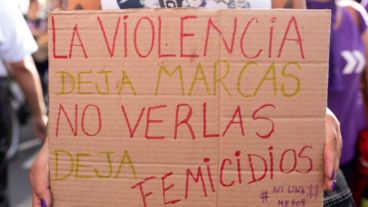 LA VIOLENCIA
DEJA MARCAS
NO VERLAS
DEJA
FEMICIDIOS
#NI UNA
MENOS